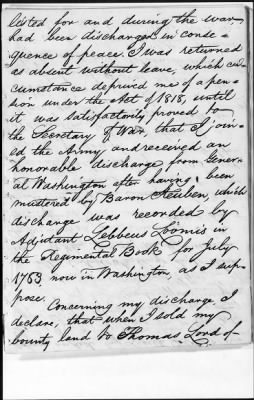 listed for and during the war,
had been discharged in conse-
quence of peace. I was returned
as absent without leave, which cir-
cumstance deprived me of a pen-
sion under the Act of 1818, until
it was satisfactorily proved to
the Secretary of War, that I join-
ed the Army, and received an
honorable discharge from Gener-
al Washington after having been
mustered by Baron Steuben, which
discharge was recorded by
Adjutant Lebbeus Loomis in
the Regimental Book for July
1783, now in Washington, as I sup-
pose.
Concerning my discharge I
declare, that when I sold my
bounty land to Thomas Lord of